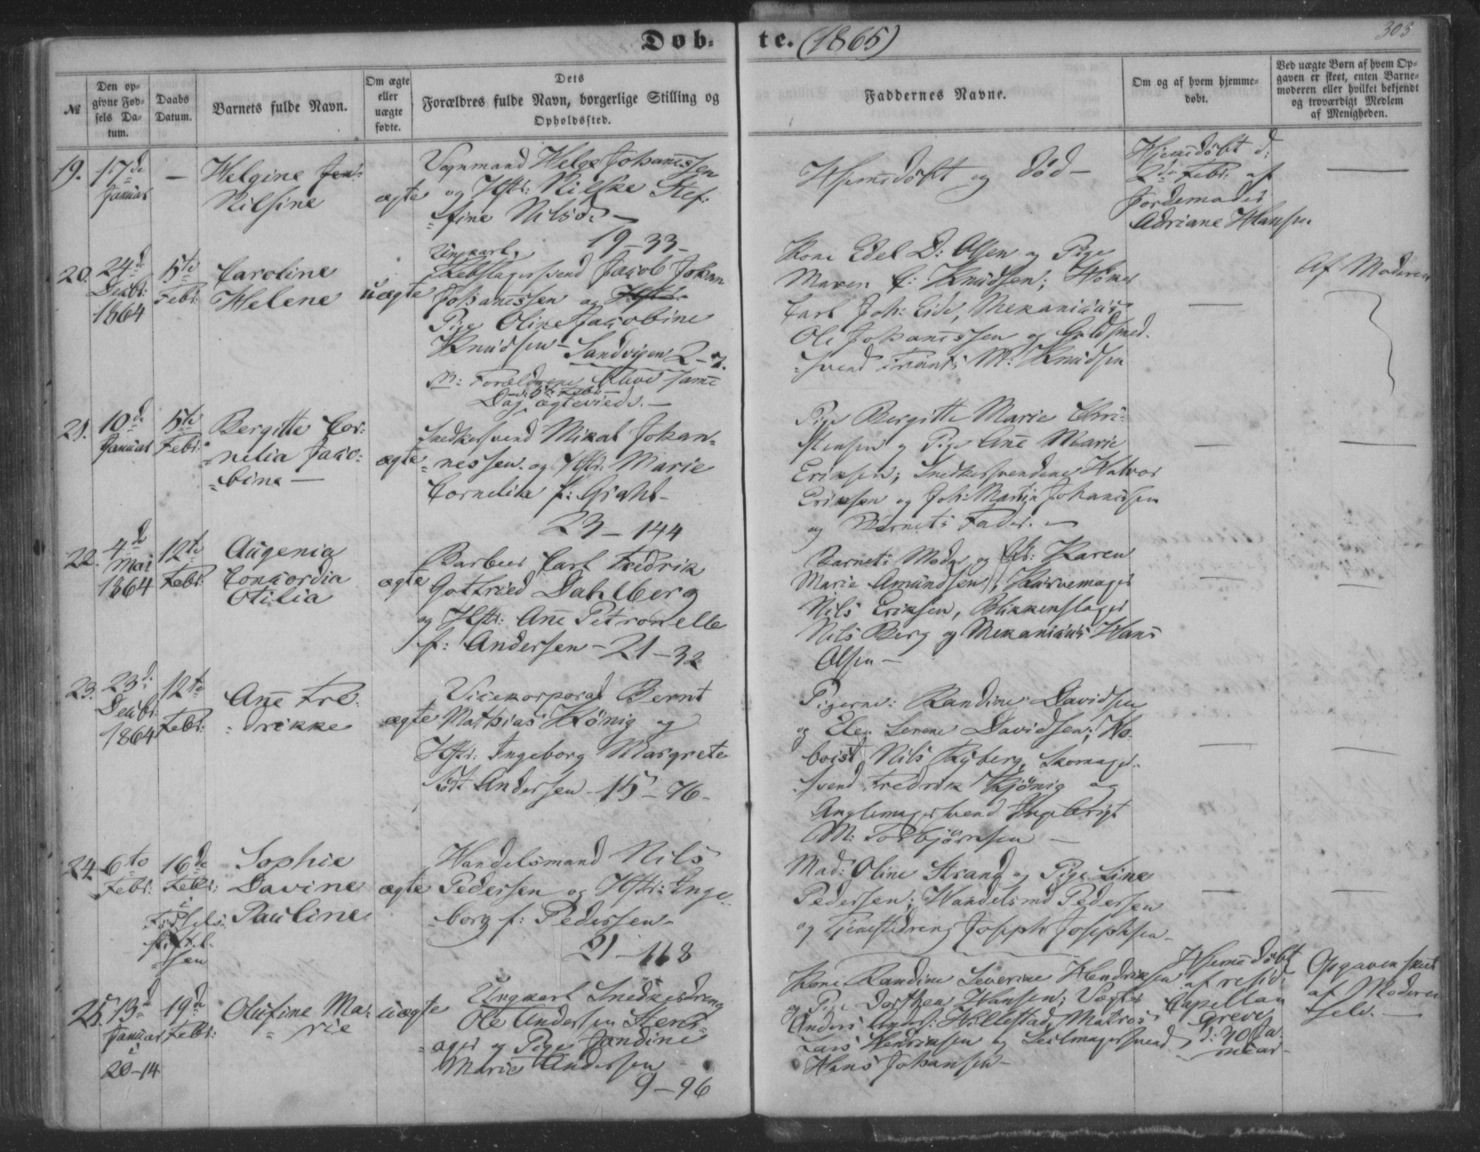 Døb- te. (1865)
305
№
Den opgivne Fødsels Datum.
Daabs Datum.
Barnets fulde Navn.
Om ægte eller uægte fødte.
Dets Forældres fulde Navn, borgerlige Stilling og Opholdssted.
Faddernes Navne.
Om og af hvem hjemmedøbt.
Ved uægte Børn af hvem Opgaven er skeet, enten Barnemoderen eller hvilket bekjendt og troværdigt Medlem af Menigheden.
19.
17de
Januar
—
Helgine
Nilsine
ægte
Vognmand Helge Johannesen
og Hstr: Nilske Stef-
fine Nilsd. —
19–33–
Hjemmedøbt og død –
Hjemmedøbt d:
2den Febr. af
Jordemoder
Adriane Hansen
20.
24de
Decbr:
1864
5te
Febr:
Caroline
Helene
uægte
Ungkarl
Rebslagersvend Jacob Johan
Johannessen og
Pige Oline Jacobine
Knudsen – Sandvigen 2–7.
N: Forældrene blev samme
Dag ægteviede. —
Kone Edel D: Olsen og Pige
Maren E: Knudsen;
Carl Joh: Eide, Mekanicus
Ole Johannessen og Guldsmed-
svend Frants M: Knudsen
Af Moderen
21.
10de
Januar
5te
Febr:
Bergitte Cor-
nelia Jaco-
bine —
ægte
Snedkersvend Nikal Johan-
nessen og Hstr: Marie
Cornelia f: Grahl-
23–144
Pige Bergitte Marie Chri-
stensen og Pige Ane Marie
Eriksen; Snedkersvendene Halvor
Eriksen og Joh: Martin Johannesen
og Barnets Fader. –
22.
4de
Mai
1864
12te
Febr:
Augenia
Concordia
Otilia
ægte
Barbeer Carl Fredrik
Gottfried Dahlberg
og Hstr: Ane Petronelle
f: Andersen – 21–32
Barnets Moder og Fr: Karen
Marie Amundsen; Kurvemager
Nils Eriksen, Blikkenslager
Nils Berg og Mekanicus Hans
Olsen –
23.
23de
Decbr:
1864
12te
Febr:
Ane Fre-
drikke
ægte
Vicekorporal Bernt
Mathias König og
Hstr: Ingeborg Margrete
født Andersen – 15–76–
Pigerne: Randine Davidsen
og Elen Lerene Davidsen; Ho-
boist Nils Ryberg, Skomager-
svend Fredrik Kjönig og
Anglemagersvend Ingebrigt
M: Torbjørnsen –
24.
6te
Febr:
16de
Febr:
Sophie
Davine
Pauline
ægte
Handelsmand Nils
Pedersen og Hstr: Inge-
borg f: Pedersen –
21–168
Mad: Oline Strand og Pige Line
Pedersen; Handelsmd Pedersen
og Tjenestedreng Joseph Josephsen –
25.
13de
Januar
20–14
19de
Febr:
Olufine Ma-
rie
uægte
Ungkarl Snedkerdreng
Ole Andersen
og Pige Jandine
Marie Andersen
9–96
Kone Randine Severine Hendriksen
og Pige Dorthea Hansen;
Anders Hillestad, Matros
Lars Henriksen og Seilmagersvend
Hans Johansen –
Hjemmedøbt
af resid:
Capellan
Greve
d: 20 Ja-
nuar –
Opgaven skeet
af Moderen
selv. —